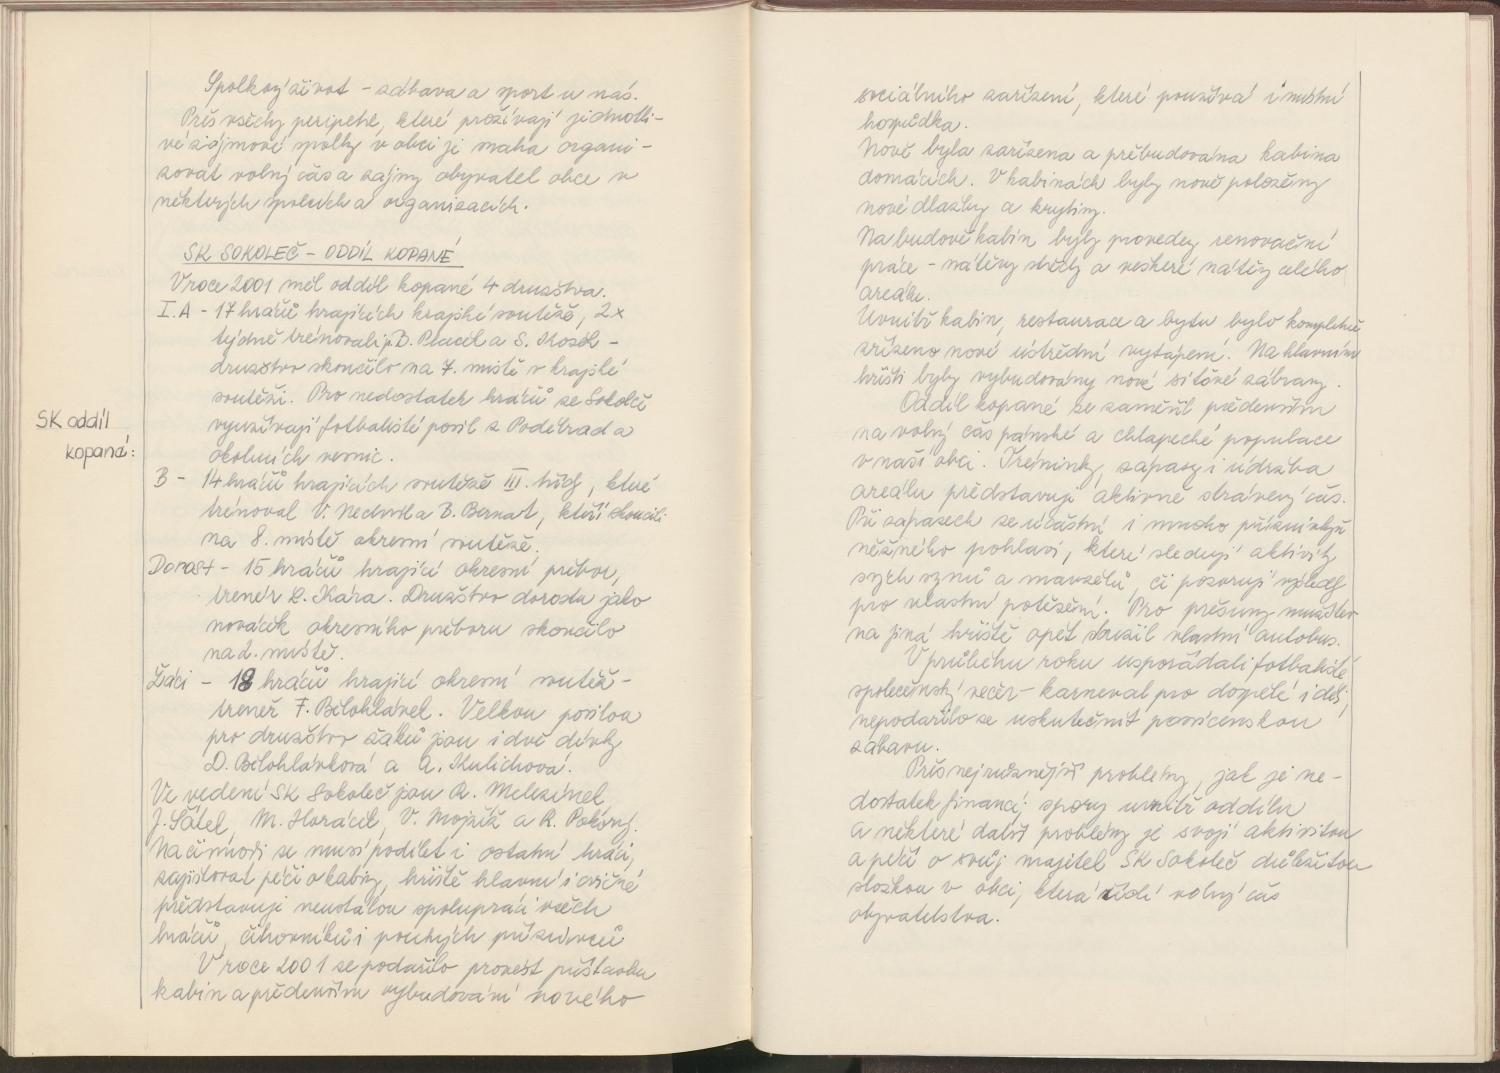 Spolkový život - zábava a sport u nás.
Přes všechny peripetie, které prožívají jednotli-
vé zájmové spolky v obci je snaha organi-
zovat volný čas a zájmy obyvatel obce v
některých spolcích a organizacích.
SK SOKOLEČ - ODDÍL KOPANÉ
V roce 2001 měl oddíl kopané 4 družstva.
SK oddíl
kopaná:
I.A - 17 hráčů hrajících krajské soutěže, 2x
týdně trénovali p. D. Placik a S. Kozel -
družstvo skončilo na 7. místě v krajské
soutěži. Pro nedostatek hráčů ze Sokolče
využívají fotbalisté posil z Poděbrad a
okolních vesnic.
B - 14 hráčů hrajících soutěže III. třídy, které
trénoval V. Nedvid a B. Bernat, kteří skončili
na 8. místě okresní soutěže.
Dorost - 15 hráčů hrající okresní přebor,
trenér L. Kára. Družstvo dorostu jako
nováček okresního přeboru skončilo
na 2. místě.
Žáci - 18 hráčů hrající okresní soutěž -
trenér F. Bělohlávek. Velkou posilou
pro družstvo žáků jsou i dvě dívky
D. Bělohlávková a A. Kulichová.
Ve vedení SK Sokoleč jsou R. Melezínek,
J. Šátel, M. Horáček, V. Mojžíž a R. Pokorný.
Na činnosti se musí podílet i ostatní hráči,
zajišťovat péči o kabiny, hřiště hlavní i cvičné
představuje neustálou spolupráci všech
hráčů, čihovníků i pouhých příznivců
V roce 2001 se podařilo provést přístavbu
kabin a především vybudování nového
sociálního zařízení, které používá i místní
hospůdka.
Nově byla zařízena a přebudována kabina
domácích. V kabinách byly nově položeny
nové dlažby a krytiny.
Na budově kabin byly provedeny renovační
práce - nátěry střechy a veškeré nátěry celého
areálu.
Uvnitř kabin, restaurace a bytu bylo kompletně
zřízeno nové ústřední vytápení. Na hlavním
hřišti byly vybudovány nové síťové zábrany.
Oddíl kopané se zaměřil především
na volný čas pánské a chlapecké populace
v naší obci. Tréninky, zápasy i údržba
areálu představují aktivně strávený čas.
Při zápasech se účastní i mnoho příznivkyň
něžného pohlaví, které sledují aktivity
svých synů a manželů, či pozorují výsledky
pro vlastní potěšení. Pro přesuny mužstev
na jiná hřiště opět sloužil vlastní autobus.
V průběhu roku uspořádali fotbalisté
společenský večer - karneval pro dospělé i děti,
nepodařilo se uskutečnit posvícenskou
zábavu.
Přes nejrůznější problémy, jak je ne-
dostatek financí, spory uvnitř oddílu
a některé další problémy je svojí aktivitou
a péčí o svůj majetek SK Sokoleč důležitou
složkou v obci, která řídí volný čas
obyvatelstva.